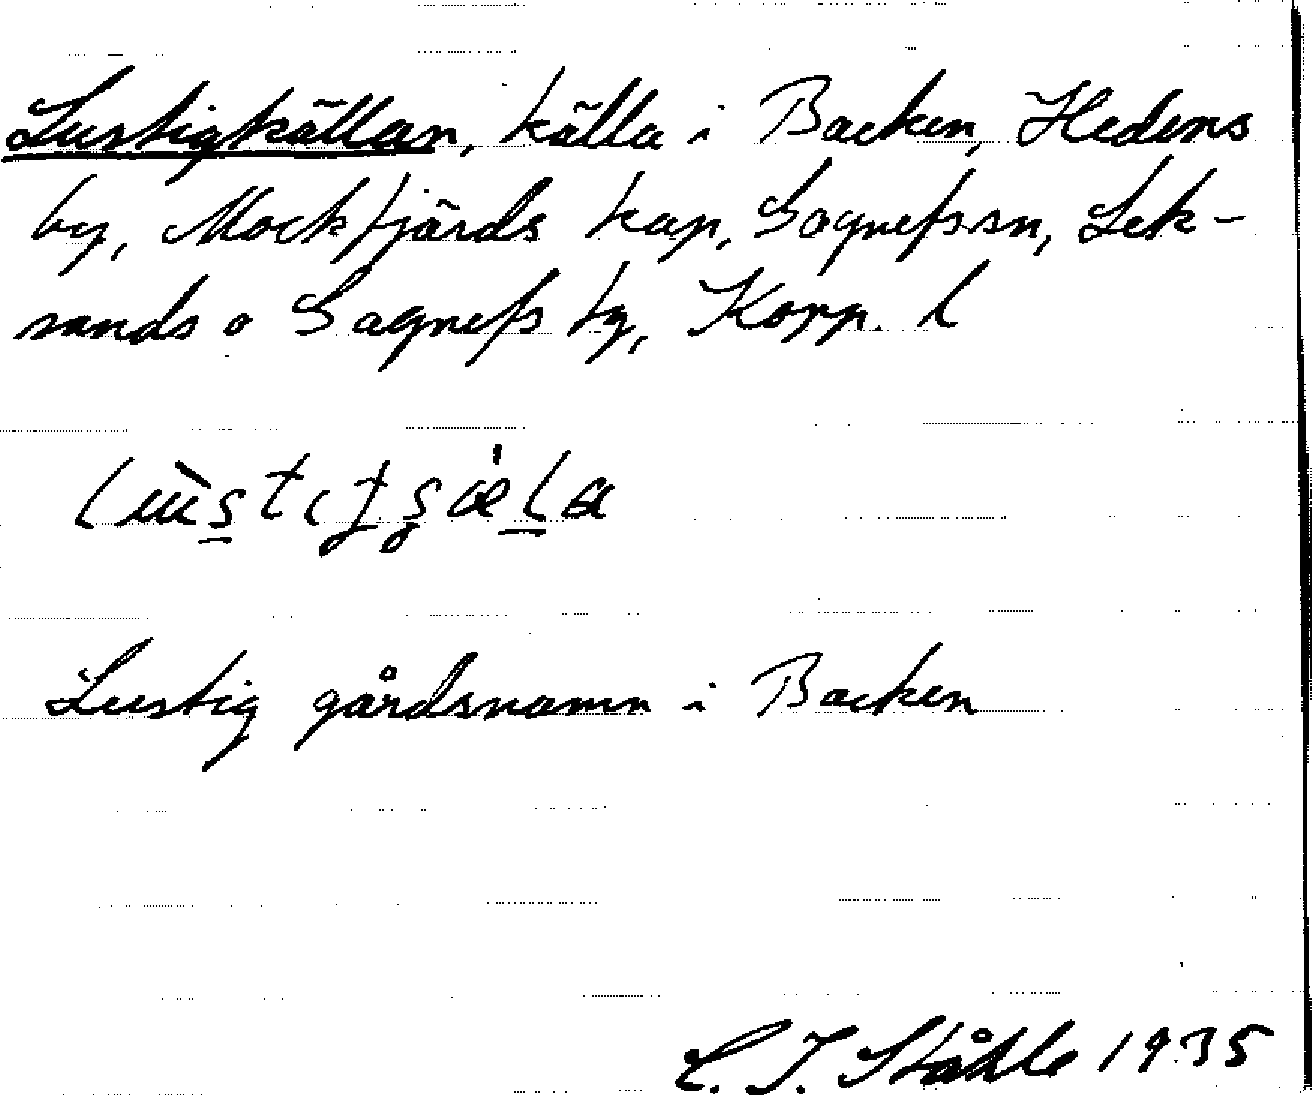 Lustigkällan, källa i Backen, Hedens
by, Mockfjärds kap, Gagnefs sn, Lek-
sands o Gagnefs tg, Kopp. l
Lustig gårdsnamn i Backen
C. I. Ståhle 1935